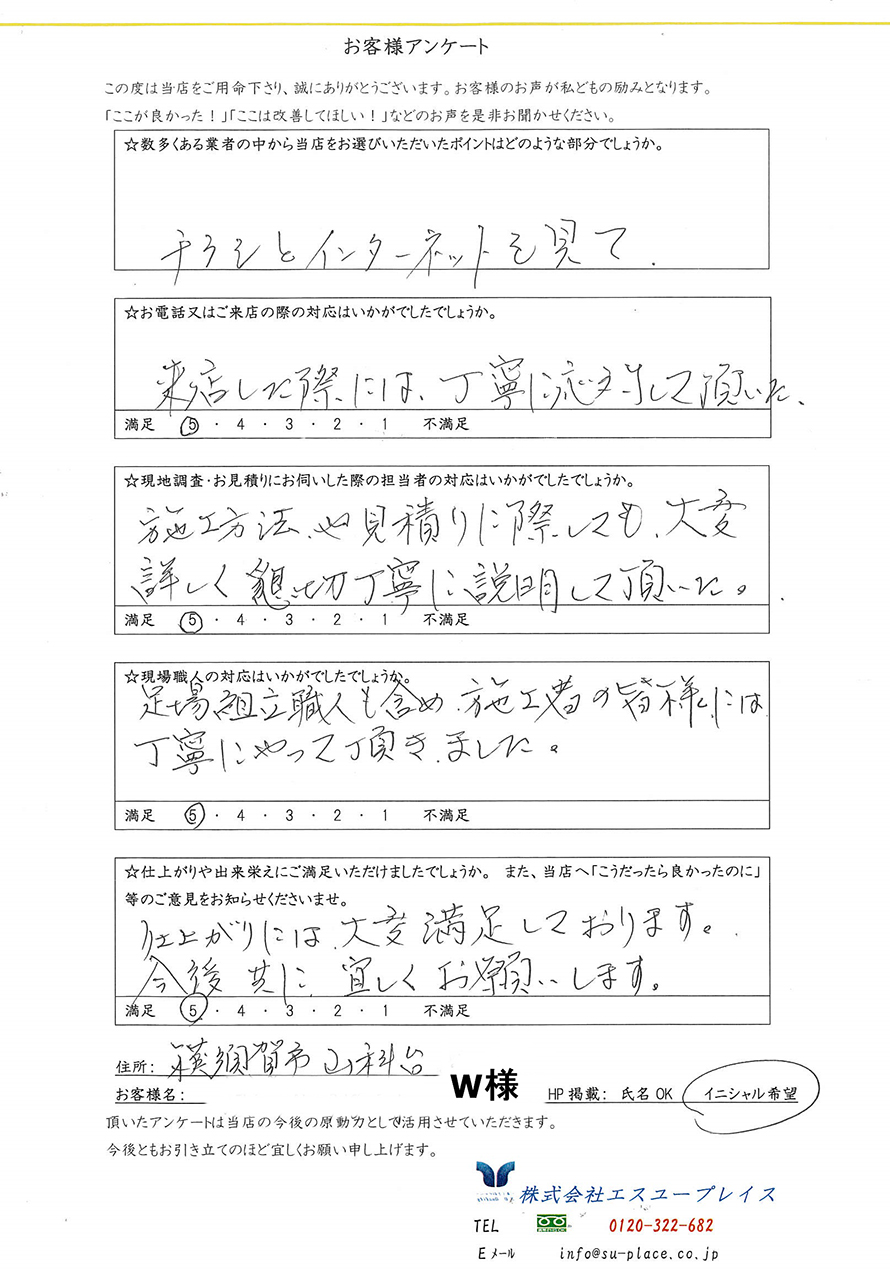 お客様アンケート
この度は当店をご用命下さり、誠にありがとうございます。お客様のお声が私どもの励みとなります。
「ここが良かった！」「ここは改善してほしい！」などのお声を是非お聞かせください。
☆数多くある業者の中から当店をお選びいただいたポイントはどのような部分でしょうか。
チラシとインターネットを見て.
☆お電話又はご来店の際の対応はいかがでしたでしょうか。
来店した際には、丁寧に応対して頂いた、
満足 5・4・3・2・1 不満足
☆現地調査・お見積りにお伺いした際の担当者の対応はいかがでしたでしょうか。
施工方法、や見積りに際しても、大変
詳しく懇切丁寧に説明して頂いた。
満足 5・4・3・2・1 不満足
☆現場職人の対応はいかがでしたでしょうか。
足場組立職人も含め、施工者の皆様には
丁寧にやって頂きました。
満足 5・4・3・2・1 不満足
☆仕上がりや出来栄えにご満足いただけましたでしょうか。 また、当店へ「こうだったら良かったのに」
等のご意見をお知らせくださいませ。
仕上がりには、大変満足しております。
今後共に、宜しくお願いします。
満足 5・4・3・2・1 不満足
住所: 横須賀市山科台
お客様名: W様 HP掲載: 氏名OK イニシャル希望
頂いたアンケートは当店の今後の原動力として活用させていただきます。
今後ともお引き立てのほど宜しくお願い申し上げます。
株式会社エスユープレイス
TEL 0120-322-682
Eメール info@su-place.co.jp